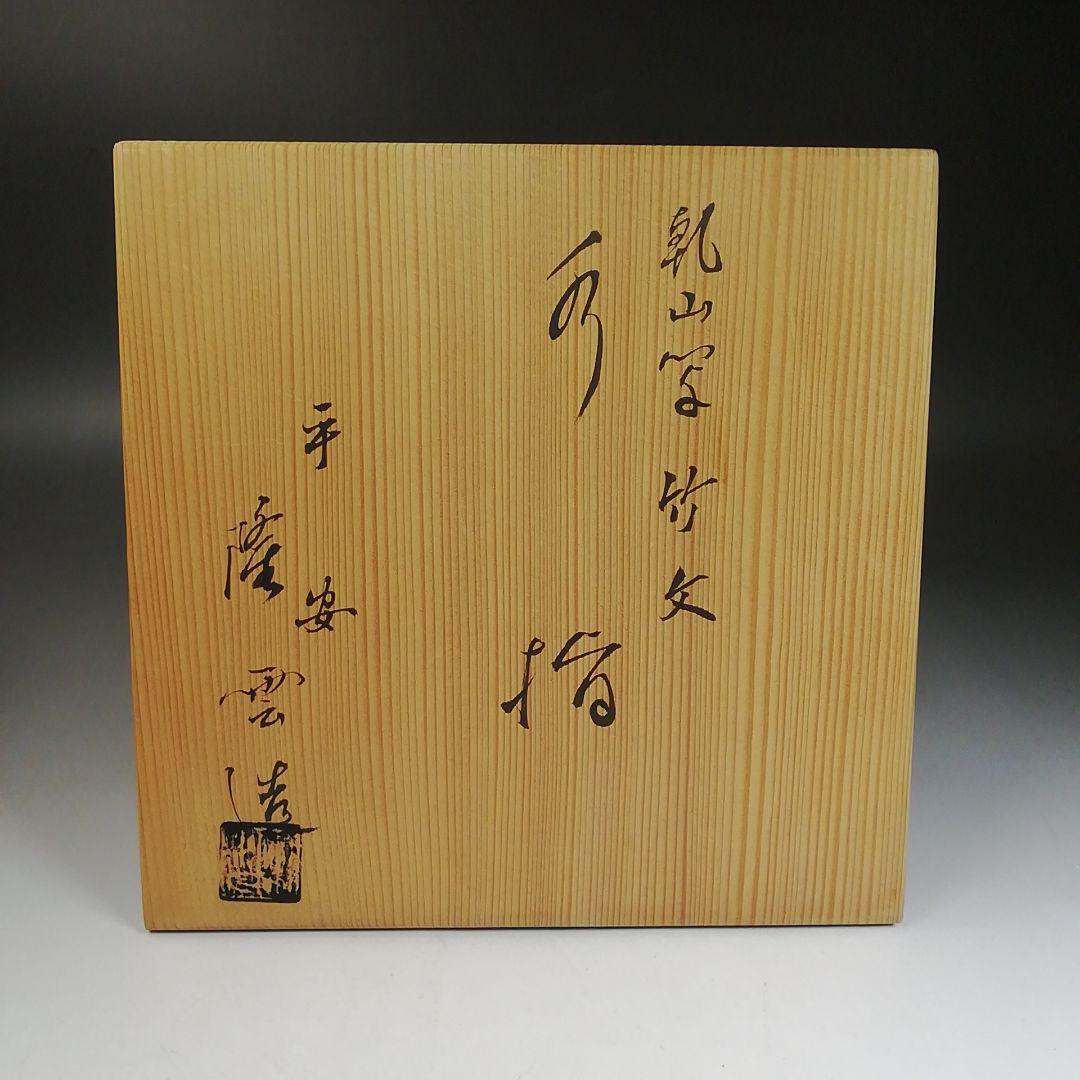 乾山写 竹文
水指
平安
隆雲造